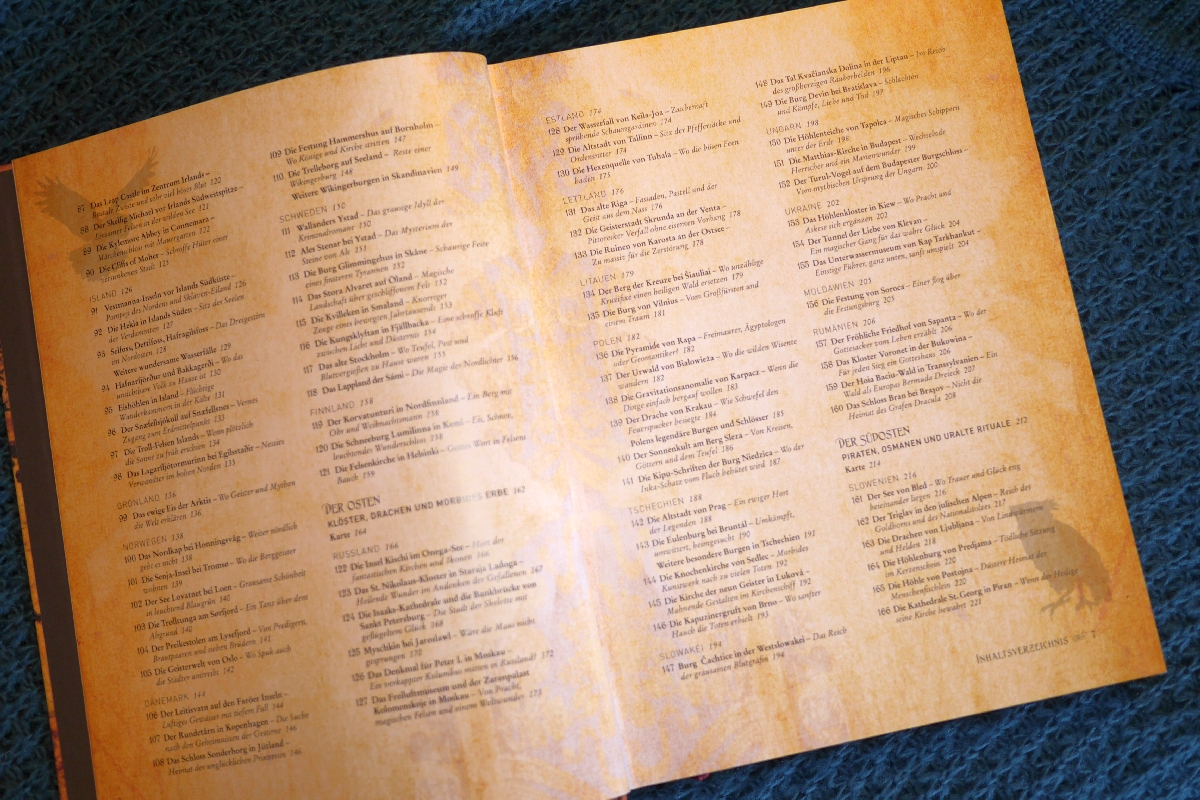 87 Das Leap Castle im Zentrum Irlands –
Brutale Zwiste und sehr viel böses Blut 120
88 Der Skellig Michael vor Irlands Südwestspitze –
Einsamer Felsen in der wilden See 121
89 Die Kylemore Abbey in Connemara –
Märchenschloss mit Mauergarten 122
90 Die Cliffs of Moher – Schroffe Hüter einer
versunkenen Stadt 123
ISLAND 126
91 Vestmanna-Inseln vor Islands Südküste –
Pompeji des Nordens und Sklaven-Eiland 126
92 Die Hekla in Islands Süden – Sitz der Seelen
der Verdammten 127
93 Selfoss, Dettifoss, Hafragilsfoss – Das Dreigestirn
im Nordosten 128
Weitere wundersame Wasserfälle 129
94 Hafnarfjörður und Bakkagerði – Wo das
unsichtbare Volk zu Hause ist 130
95 Eishöhlen in Island – Flüchtige
Wunderkammern in der Kälte 131
96 Der Snæfellsjökull auf Snæfellsnes – Vernes
Zugang zum Erdmittelpunkt 133
97 Die Troll-Felsen Islands – Wenn plötzlich
die Sonne zu früh erscheint 134
98 Das Lagarfljótormurinn bei Egilsstaðir – Nessies
Verwandter im hohen Norden 135
GRÖNLAND 136
99 Das ewige Eis der Arktis – Wo Geister und Mythen
die Welt erklären 136
NORWEGEN 138
100 Das Nordkap bei Honningsvåg – Weiter nördlich
geht es nicht 138
101 Die Senja-Insel bei Tromsø – Wo die Berggeister
wohnen 139
102 Der See Lovatnet bei Loen – Grausame Schönheit
in leuchtend Blaugrün 140
103 Die Trolltunga am Sørfjord – Ein Tanz über dem
Abgrund 140
104 Der Preikestolen am Lysefjord – Von Predigern,
Brautpaaren und sieben Brüdern 141
105 Die Geisterwelt von Oslo – Wo Spuk auch
die Städter umtreibt 142
DÄNEMARK 144
106 Der Leitisvatn auf den Faröer Inseln –
Luftiges Gewässer mit tiefem Fall 144
107 Der Rundetårn in Kopenhagen – Die Suche
nach den Geheimnissen der Gestirne 146
108 Das Schloss Sonderborg in Jütland –
Heimat der unglücklichen Prinzessin 146
109 Die Festung Hammershus auf Bornholm –
Wo Könige und Kirche stritten 147
110 Die Trelleborg auf Seeland – Reste einer
Wikingerburg 148
Weitere Wikingerburgen in Skandinavien 149
SCHWEDEN 150
111 Wallanders Ystad – Das grausige Idyll der
Kriminalromane 150
112 Ales Stenar bei Ystad – Das Mysterium der
Steine von Ale 151
113 Die Burg Glimmingehus in Skåne – Schaurige Feste
eines finsteren Tyrannen 152
114 Das Stora Alvaret auf Öland – Magische
Landschaft über geschliffenem Fels 152
115 Die Kvilleken in Småland – Knorriger
Zeuge eines bewegten Jahrtausends 153
116 Die Kungsklyftan in Fjällbacka – Eine schroffe Kluft
zwischen Licht und Düsternis 154
117 Das alte Stockholm – Wo Teufel, Pest und
Blutvergießen zu Hause waren 155
118 Das Lappland der Sámi – Die Magie der Nordlichter 156
FINNLAND 158
119 Der Korvatunturi in Nordfinnland – Ein Berg mit
Ohr und Weihnachtsmann 158
120 Die Schneeburg Lumilinna in Kemi – Eis, Schnee,
leuchtendes Wunderschloss 158
121 Die Felsenkirche in Helsinki – Gottes Wort in Felsens
Bauch 159
DER OSTEN
KLÖSTER, DRACHEN UND MORBIDES ERBE 162
Karte 164
RUSSLAND 166
122 Die Insel Kischi im Onega-See – Hort der
fantastischen Kirchen und Ikonen 166
123 Das St. Nikolaus-Kloster in Staraja Ladoga –
Heilende Wunder im Andenken der Gefallenen 167
124 Die Isaaks-Kathedrale und die Bankbrücke von
Sankt Petersburg – Die Stadt der Skelette mit
geflügeltem Glück 168
125 Myschkin bei Jaroslawl – Wäre die Maus nicht
gesprungen 170
126 Das Denkmal für Peter I. in Moskau –
Ein verkappter Kolumbus mitten in Russland? 172
127 Das Freiluftmuseum und der Zarenpalast
Kolomenskoje in Moskau – Von Pracht,
magischen Felsen und einem Weltwunder 173
ESTLAND 174
128 Der Wasserfall von Keila-Joa – Zauberhaft
sprühende Schaumgardinen 174
129 Die Altstadt von Tallinn – Sitz der Pfeffersäcke und
Ordensritter 174
130 Die Hexenquelle von Tuhala – Wo die bösen Feen
baden 175
LETTLAND 176
131 Das alte Riga – Fassaden, Pastell und der
Geist aus dem Nass 176
132 Die Geisterstadt Skrunda an der Venta –
Pittoresker Verfall ohne eisernen Vorhang 178
133 Die Ruinen von Karosta an der Ostsee –
Zu massiv für die Zerstörung 178
LITAUEN 179
134 Der Berg der Kreuze bei Šiauliai – Wo unzählige
Kruzifixe einen heiligen Wald ersetzen 179
135 Die Burg von Vilnius – Vom Großfürsten und
einem Traum 181
POLEN 182
136 Die Pyramide von Rapa – Freimaurer, Ägyptologen
oder Geomantiker? 182
137 Der Urwald von Białowieża – Wo die wilden Wisente
wandern 182
138 Die Gravitationsanomalie von Karpacz – Wenn die
Dinge einfach bergauf wollen 183
139 Der Drache von Krakau – Wie Schwefel den
Feuerspucker besiegte 184
Polens legendäre Burgen und Schlösser 185
140 Der Sonnenkult am Berg Ślęża – Von Kreuzen,
Göttern und dem Teufel 186
141 Die Kipu-Schriften der Burg Niedzica – Wo der
Inka-Schatz vom Fluch behütet wird 187
TSCHECHIEN 188
142 Die Altstadt von Prag – Ein ewiger Hort
der Legenden 188
143 Die Eulenburg bei Bruntál – Umkämpft,
unwittert, heimgesucht 190
Weitere besondere Burgen in Tschechien 191
144 Die Knochenkirche von Sedlec – Morbides
Kunstwerk nach zu vielen Toten 192
145 Die Kirche der neun Geister in Luková –
Mahnende Gestalten im Kirchenschiff 192
146 Die Kapuzinergruft von Brno – Wo sanfter
Hauch die Toten erhielt 193
SLOWAKEI 194
147 Burg Čachtice in der Westslowakei – Das Reich
der grausamen Blutgräfin 194
148 Das Tal Kvačianska Dolina in der Liptau – Im Reich
des großherzigen Räuberhelden 196
149 Die Burg Devín bei Bratislava – Schlachten
und Kämpfe, Liebe und Tod 197
UNGARN 198
150 Die Höhlenteiche von Tapolca – Magisches Schippern
unter der Erde 198
151 Die Matthias-Kirche in Budapest – Wechselnde
Herrscher und ein Marienwunder 199
152 Der Turul-Vogel auf dem Budapester Burgschloss –
Vom mythischen Ursprung der Ungarn 200
UKRAINE 202
153 Das Höhlenkloster in Kiew – Wo Pracht und
Askese sich ergänzen 202
154 Der Tunnel der Liebe von Klevan –
Ein magischer Gang für das wahre Glück 204
155 Das Unterwassermuseum von Kap Tarkhankut –
Einstige Führer, ganz unten, sanft umspielt 204
MOLDAWIEN 205
156 Die Festung von Soroca – Einer flog über
die Festungsburg 205
RUMÄNIEN 206
157 Der Fröhliche Friedhof von Sapanta – Wo der
Gottesacker vom Leben erzählt 206
158 Das Kloster Voroneț in der Bukowina –
Für jeden Sieg ein Gotteshaus 206
159 Der Hoia Baciu-Wald in Transsylvanien – Ein
Wald als Europas Bermuda Dreieck 207
160 Das Schloss Bran bei Brașov – Nicht die
Heimat des Grafen Dracula 208
DER SÜDOSTEN
PIRATEN, OSMANEN UND URALTE RITUALE 212
Karte 214
SLOWENIEN 216
161 Der See von Bled – Wo Trauer und Glück eng
beieinander liegen 216
162 Der Triglav in den julischen Alpen – Reich des
Goldhorns und der Nationalstolzes 217
163 Die Drachen von Ljubljana – Von Lindwürmern
und Helden 218
164 Die Höhlenburg von Predjama – Tödliche Sitzung
im Kerzenschein 220
165 Die Höhle von Postojna – Düstere Heimat der
Menschenfischlein 220
166 Die Kathedrale St. Georg in Piran – Wenn der Heilige
seine Kirche bewahrt 221
INHALTSVERZEICHNIS 7